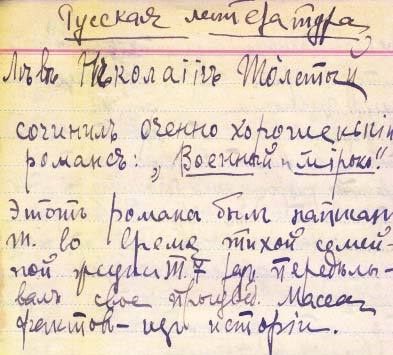 Русская литература
Левъ Николаiичъ Толстый
сочинилъ оченно хорошенькiй
романсъ: „Военный и мiрокъ"
Этотъ романъ былъ написан
Т. во время тихой семей-
ной жизни. Т. 7 раз передѣлы-
валъ свое произвед. Масса
фактов – изъ исторiи.